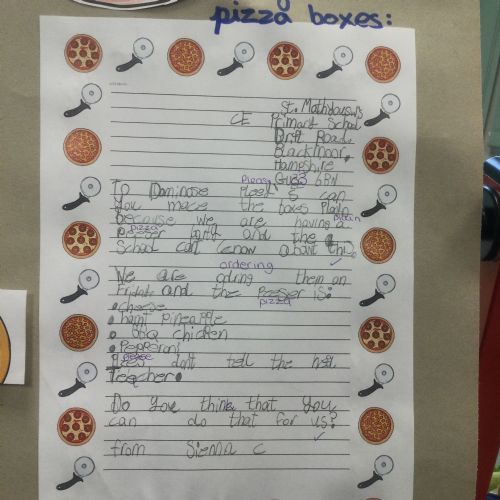 pizza boxes:
St. Matthew's
CE Primary School
Drift Road
Blackmoor,
Hampshire
6BN
Please
To Dominose can
you mace the boxes Playn
Plain
because we are having a
pizza
party and the
School cant know about this
ordering
We are odring them on
Friday and the Peeser is:
pizza
• cheese
• haint Pineapple
• BBQ chicken
• Pepperoni
Please
Plees don't tell the hed
Teacher.
Do you think that you
can do that for us?
from Sienna C